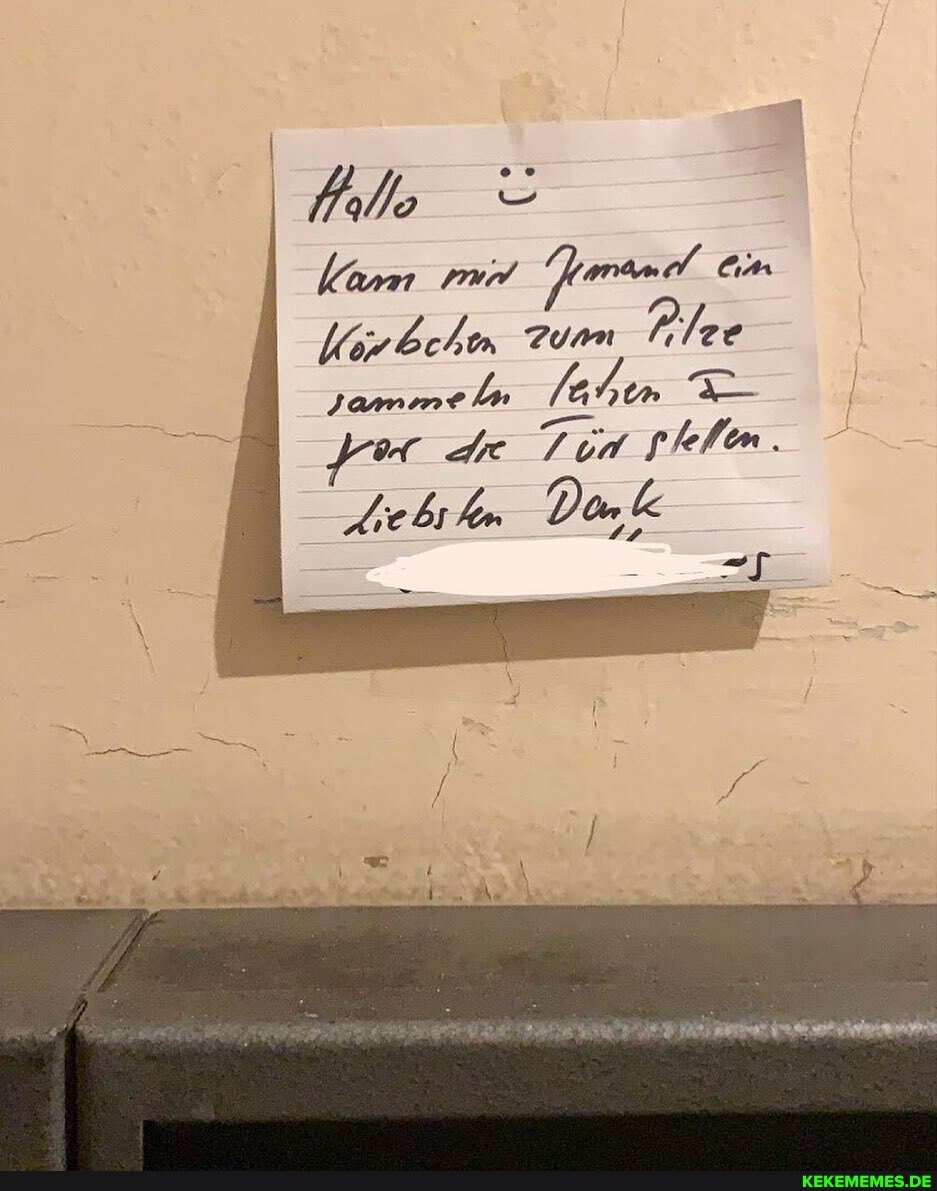 Hallo
Kann mir Jemand ein
Körbchen zum Pilze
sammeln leihen
vor die Tür stellen.
Liebsten Dank
KEKEMEMES.DE